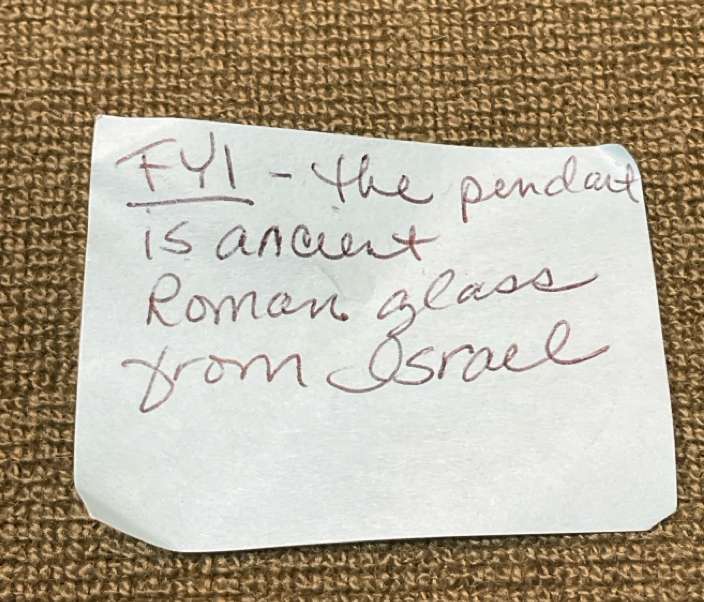 FYI - the pendant
is ancient
Roman glass
from Israel